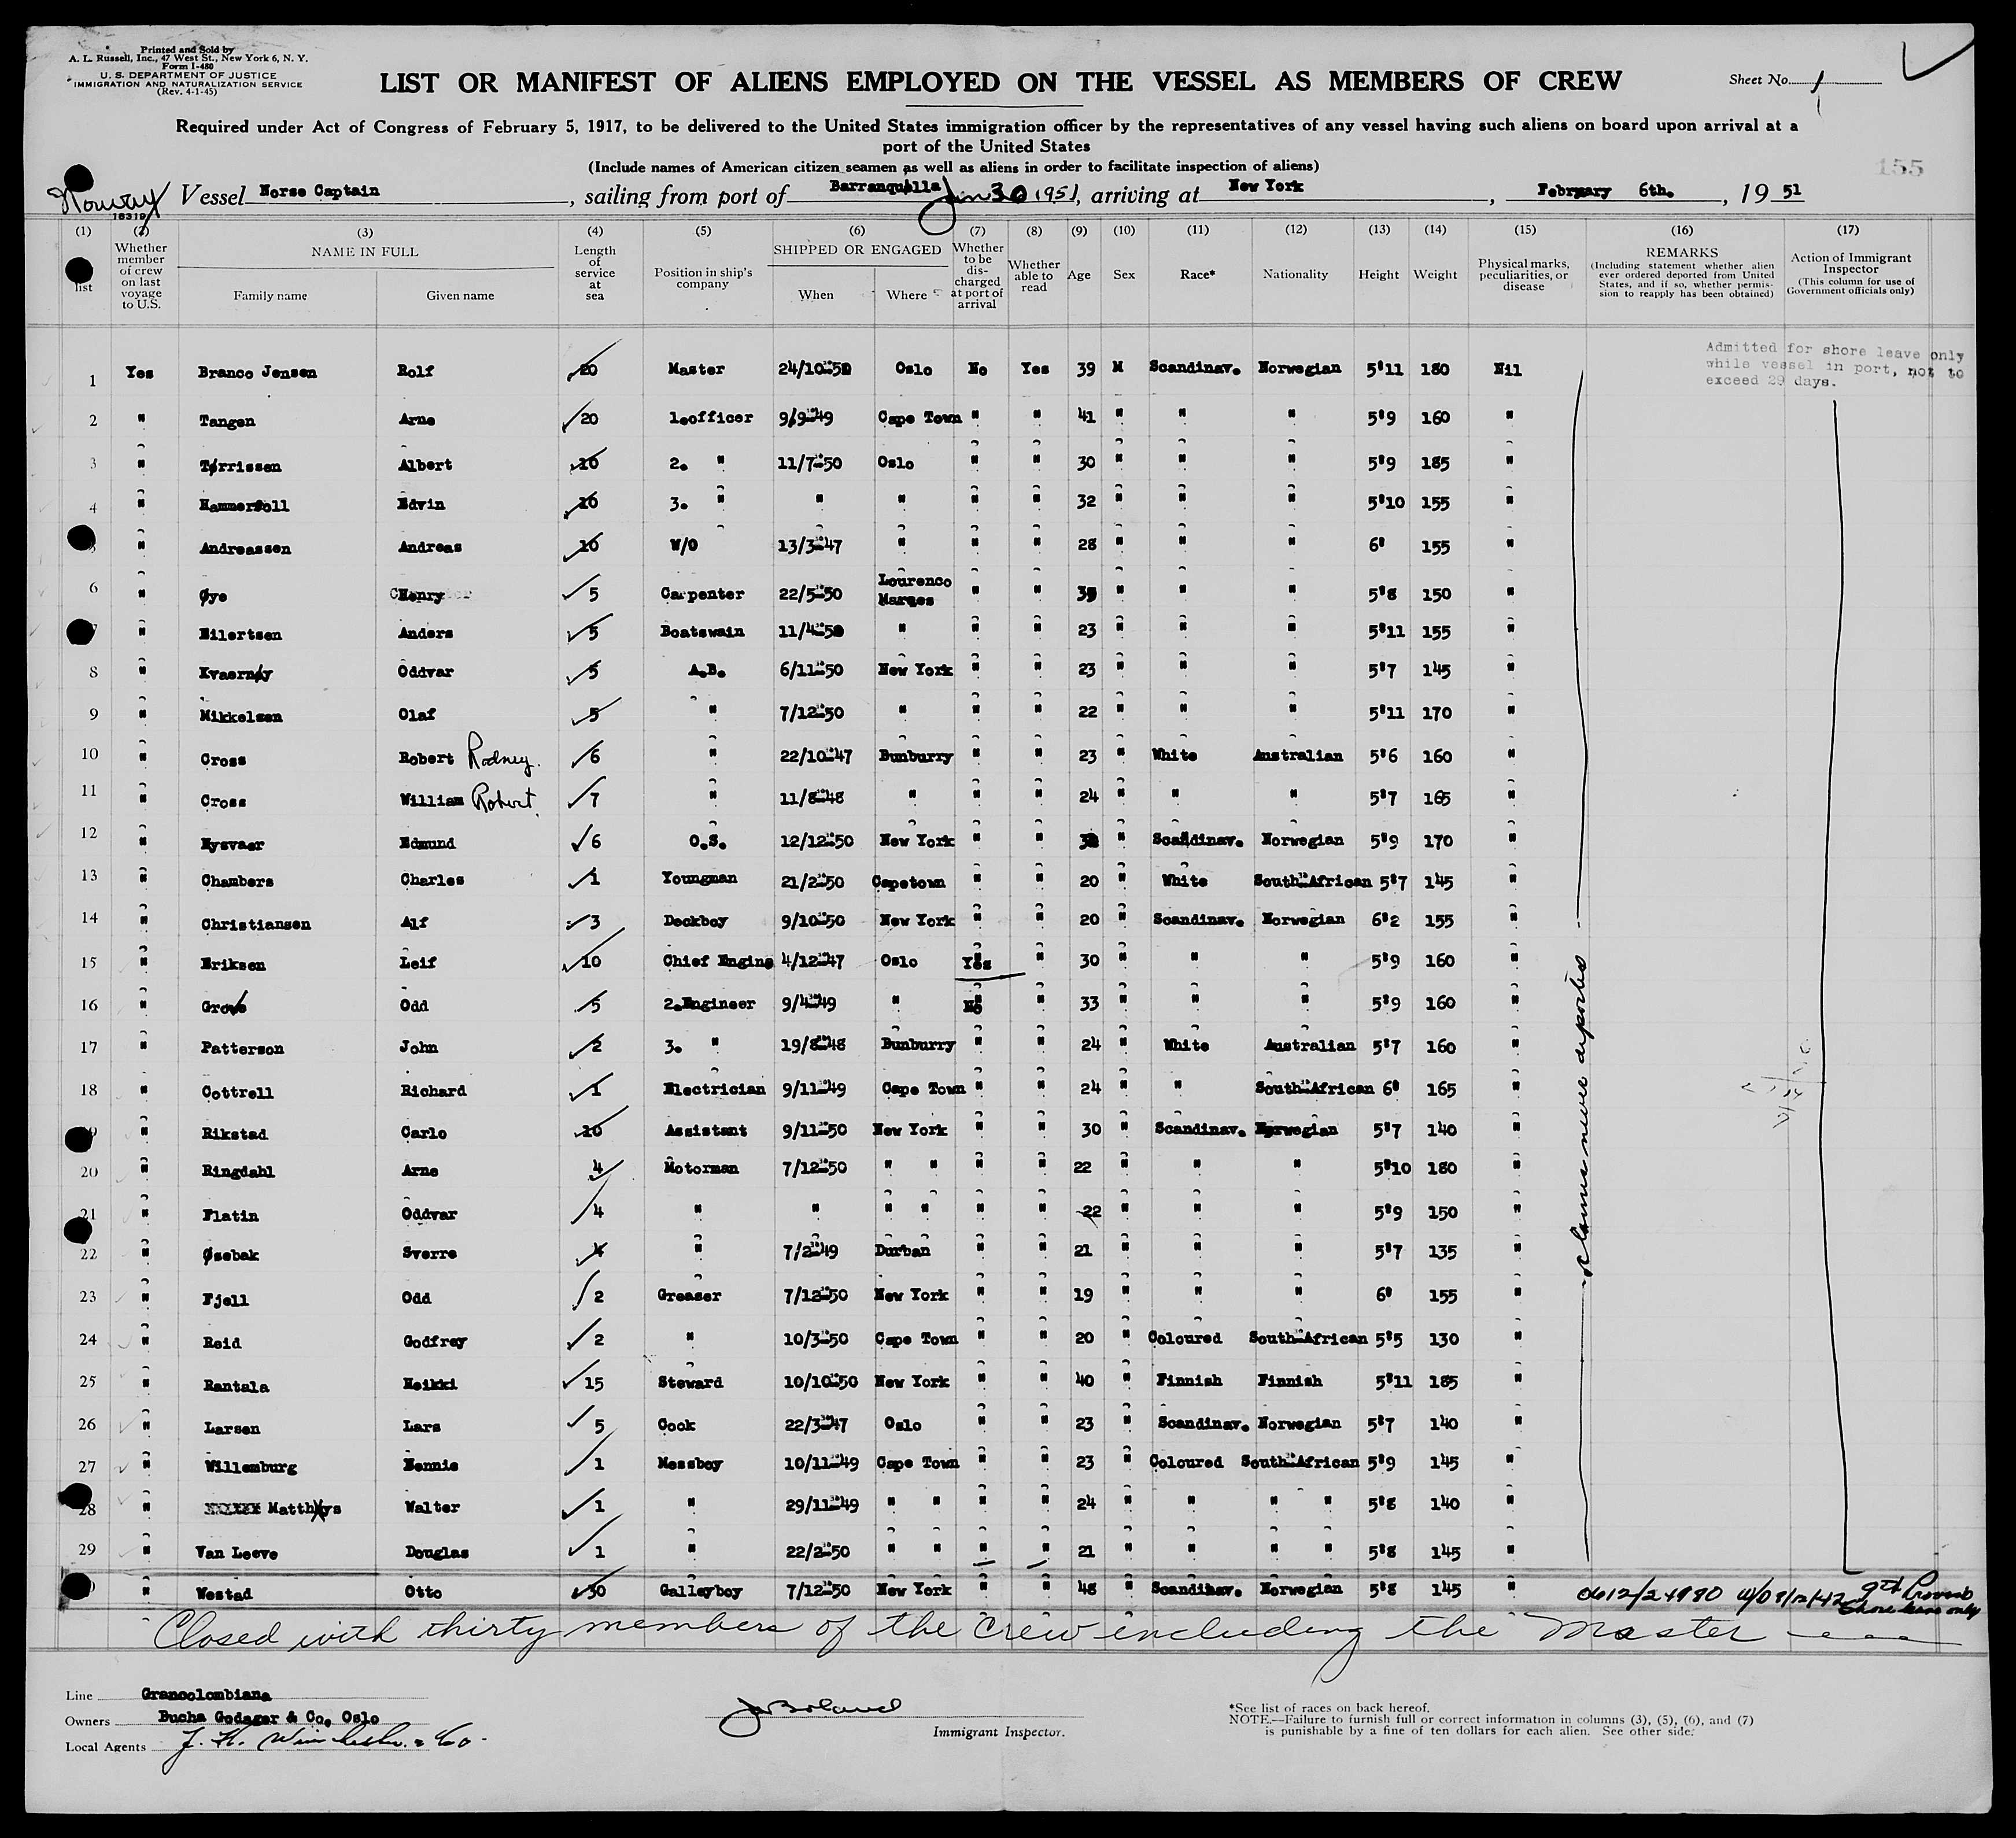 Printed and Sold by
A. L. Russell, Inc., 47 West St., New York 6, N. Y.
Form I-480
U. S. DEPARTMENT OF JUSTICE
IMMIGRATION AND NATURALIZATION SERVICE
(Rev. 4-1-45)
LIST OR MANIFEST OF ALIENS EMPLOYED ON THE VESSEL AS MEMBERS OF CREW
Sheet No. 1
Required under Act of Congress of February 5, 1917, to be delivered to the United States immigration officer by the representatives of any vessel having such aliens on board upon arrival at a
port of the United States
(Include names of American citizen seamen as well as aliens in order to facilitate inspection of aliens)
155
Norway Vessel Norse Captain, sailing from port of Barranquilla Jan 30 1951, arriving at New York, February 6th., 19 51
(1) (2) (3) (4) (5) (6) (7) (8) (9) (10) (11) (12) (13) (14) (15) (16) (17)
list
Whether member of crew on last voyage to U.S.
NAME IN FULL
Family name Given name
Length of service at sea
Position in ship's company
SHIPPED OR ENGAGED
When Where
Whether to be discharged at port of arrival
Whether able to read
Age Sex Race* Nationality Height Weight
Physical marks, peculiarities, or disease
REMARKS
(Including statement whether alien ever ordered deported from United States, and if so, whether permission to reapply has been obtained)
Action of Immigrant Inspector
(This column for use of Government officials only)
Admitted for shore leave only
while vessel in port, not to
exceed 29 days.
1 Yes Branco Jensen Rolf 20 Master 24/10-50 Oslo No Yes 39 M Scandinav. Norwegian 5'11 180 Nil
2 " Tangen Arne 20 1.officer 9/9-49 Cape Town " " 41 " " " 5'9 160 "
3 " Tørrissen Albert 10 2. " 11/7-50 Oslo " " 30 " " " 5'9 185 "
4 " Hammervoll Edvin 10 3. " " " " " 32 " " " 5'10 155 "
5 " Andreassen Andreas 10 W/O 13/3-47 " " " 28 " " " 6' 155 "
6 " Øye Henry 5 Carpenter 22/5-50 Lourenco Marques " " " " " 5'8 150 "
7 " Eilertsen Anders 5 Boatswain 11/4-50 " " " 23 " " " 5'11 155 "
8 " Kvaernøy Oddvar 5 A.B. 6/11-50 New York " " 23 " " " 5'7 145 "
9 " Mikkelsen Olaf 5 " 7/12-50 " " " 22 " " " 5'11 170 "
10 " Cross Robert Rodney. 6 " 22/10-47 Bunburry " " 23 " White Australian 5'6 160 "
11 " Cross William Robert. 7 " 11/8-48 " " " 24 " " " 5'7 165 "
12 " Hysvaer Edmund 6 O.S. 12/12-50 New York " " " Scandinav. Norwegian 5'9 170 "
13 " Chambers Charles 1 Youngman 21/2-50 Capetown " " 20 " White South-African 5'7 145 "
14 " Christiansen Alf 3 Deckboy 9/10-50 New York " " 20 " Scandinav. Norwegian 6'2 155 "
15 " Eriksen Leif 10 Chief Engine 4/12-47 Oslo Yes " 30 " " " 5'9 160 "
16 " Grove Odd 5 2.Engineer 9/4-49 " No " 33 " " " 5'9 160 "
17 " Patterson John 2 3. " 19/8-48 Bunburry " " 24 " White Australian 5'7 160 "
18 " Cottrell Richard 1 Electrician 9/11-49 Cape Town " " 24 " " South-African 6' 165 "
19 " Rikstad Carlo 10 Assistant 9/11-50 New York " " 30 " Scandinav. Norwegian 5'7 140 "
20 " Ringdahl Arne 4 Motorman 7/12-50 " " " " 22 " " " 5'10 180 "
21 " Flatin Oddvar 4 " " " " " " 22 " " " 5'9 150 "
22 " Øsebak Sverre 4 " 7/2-49 Durban " " 21 " " " 5'7 135 "
23 " Fjell Odd 2 Greaser 7/12-50 New York " " 19 " " " 6' 155 "
24 " Reid Godfrey 2 " 10/3-50 Cape Town " " 20 " Coloured South-African 5'5 130 "
25 " Rantala Heikki 15 Steward 10/10-50 New York " " 40 " Finnish Finnish 5'11 185 "
26 " Larsen Lars 5 Cook 22/3-47 Oslo " " 23 " Scandinav. Norwegian 5'7 140 "
27 " Willemburg Hennie 1 Messboy 10/11-49 Cape Town " " 23 " Coloured South-African 5'9 145 "
28 " Matthys Walter 1 " 29/11-49 " " " " 24 " " " " 5'8 140 "
29 " Van Leeve Douglas 1 " 22/2-50 " " " " 21 " " " " 5'8 145 "
" Westad Otto 30 Galleyboy 7/12-50 New York " " 48 " Scandinav. Norwegian 5'8 145 "
claims never deported
Shore leave only
Closed with thirty members of the crew including the Master
Line Grancolombiana
Owners Bucha Godager & Co, Oslo
Local Agents J. H. Winchester & Co.
Immigrant Inspector.
*See list of races on back hereof.
NOTE.—Failure to furnish full or correct information in columns (3), (5), (6), and (7)
is punishable by a fine of ten dollars for each alien. See other side.